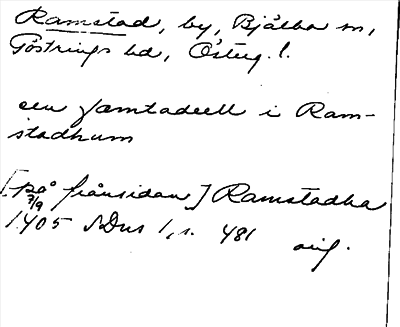 Ramstad, by, Bjälbo sn,
Göstrings hd, Österg. l.
een jæmtadeell i Ram-
stadhum
[på frånsidan] Ramstadha
7/9 1405 SDns 1, s. 481
orig.